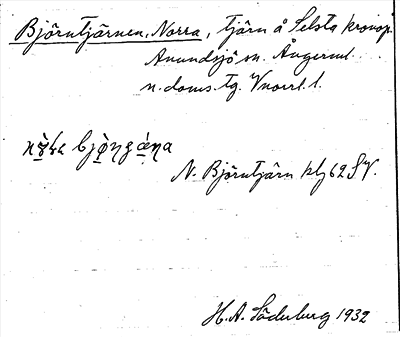 Björntjärnen, Norra, tjärn å Selsta kronop.
Anundsjö sn. Ångerml.
n. doms. tg. Vnorrl. l.
N. Björntjärn klj 62 SV.
H. A. Söderberg 1932